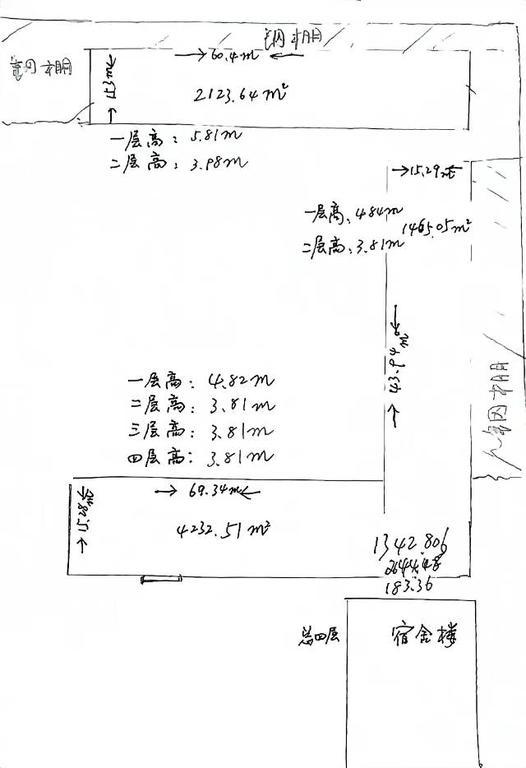 钢棚
钢棚
60.4m
15.3m
2123.64m²
一层高：5.81m
二层高：3.98m
15.29m
一层高：4.84m
1465.05m²
二层高：3.81m
43.94m
钢棚
一层高：4.82m
二层高：3.81m
三层高：3.81m
四层高：3.81m
69.34m
15.28m
4232.51m²
1342.806
2644.48
183.36
总四层
宿舍楼